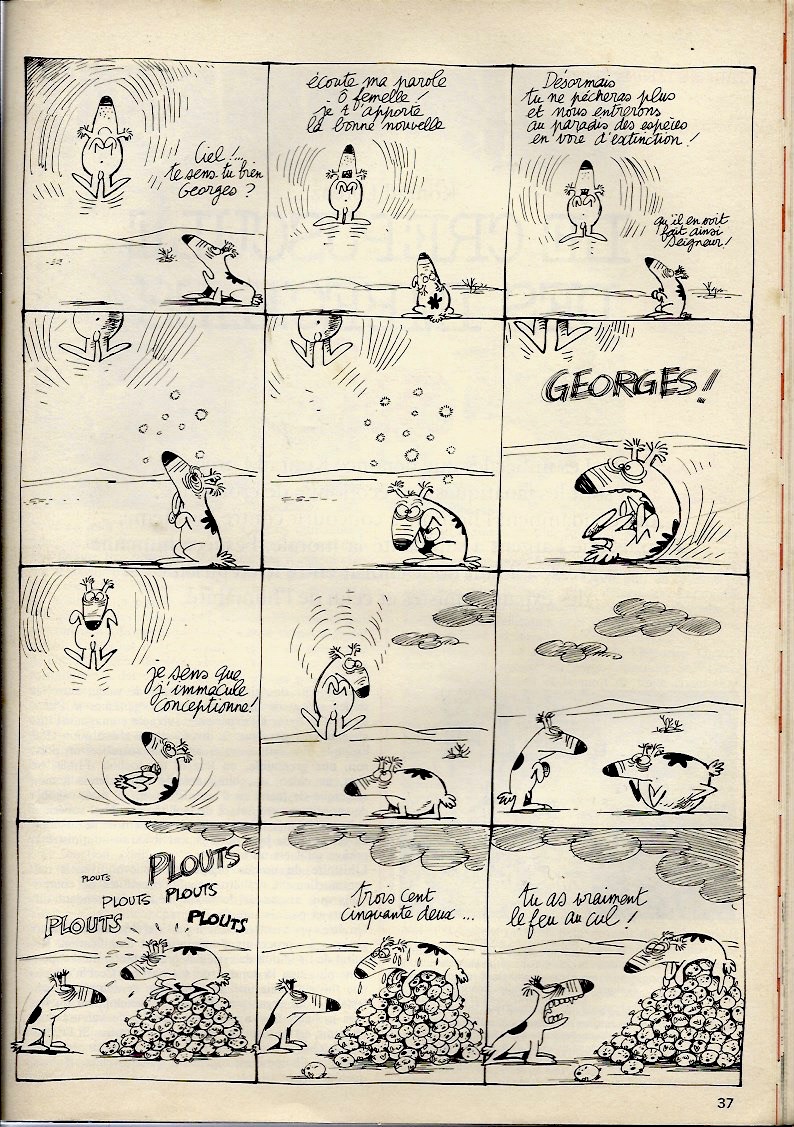 Ciel !..
te sens tu bien
Georges ?
écoute ma parole
ô femelle !
je t'apporte
la bonne nouvelle
Désormais
tu ne pécheras plus
et nous entrerons
au paradis des espèces
en voie d'extinction !
qu'il en soit
fait ainsi
Seigneur !
GEORGES !
je sens que
j'immacule
conceptionne !
PLOUTS
PLOUTS
PLOUTS
PLOUTS
PLOUTS
PLOUTS
trois cent
cinquante deux ...
tu as vraiment
le feu au cul !
37